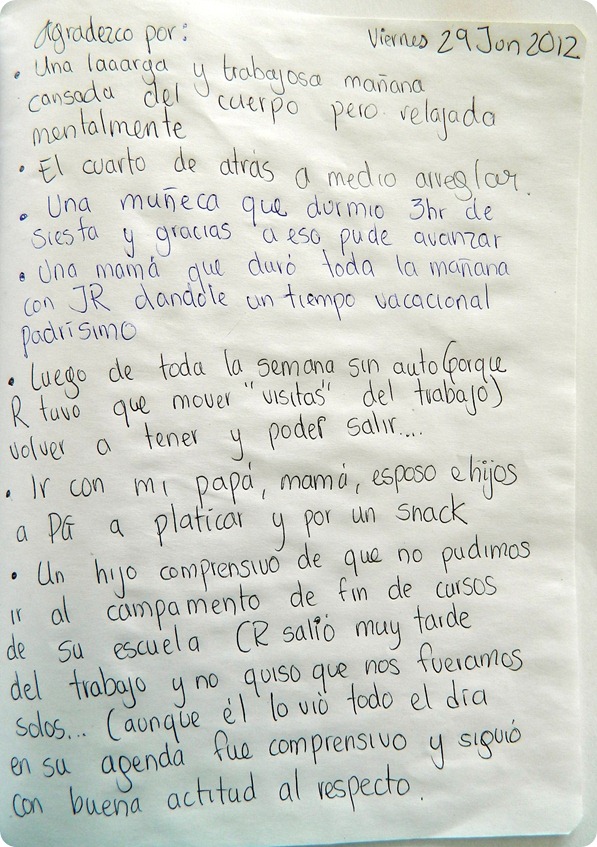 Agradezco por:
Viernes 29 Jun 2012
• Una laaarga y trabajosa mañana
cansada del cuerpo pero relajada
mentalmente
• El cuarto de atrás a medio arreglar.
• Una muñeca que durmio 3hr de
siesta y gracias a eso pude avanzar
• Una mamá que duró toda la mañana
con JR dandole un tiempo vacacional
padrísimo
• Luego de toda la semana sin auto (porque
R tuvo que mover "visitas" del trabajo)
volver a tener y poder salir....
• Ir con mi papá, mamá, esposo e hijos
a PG a platicar y por un snack
• Un hijo comprensivo de que no pudimos
ir al campamento de fin de cursos
de su escuela (R salió muy tarde
del trabajo y no quiso que nos fueramos
solos... (aunque él lo vió todo el día
en su agenda fue comprensivo y siguió
con buena actitud al respecto.